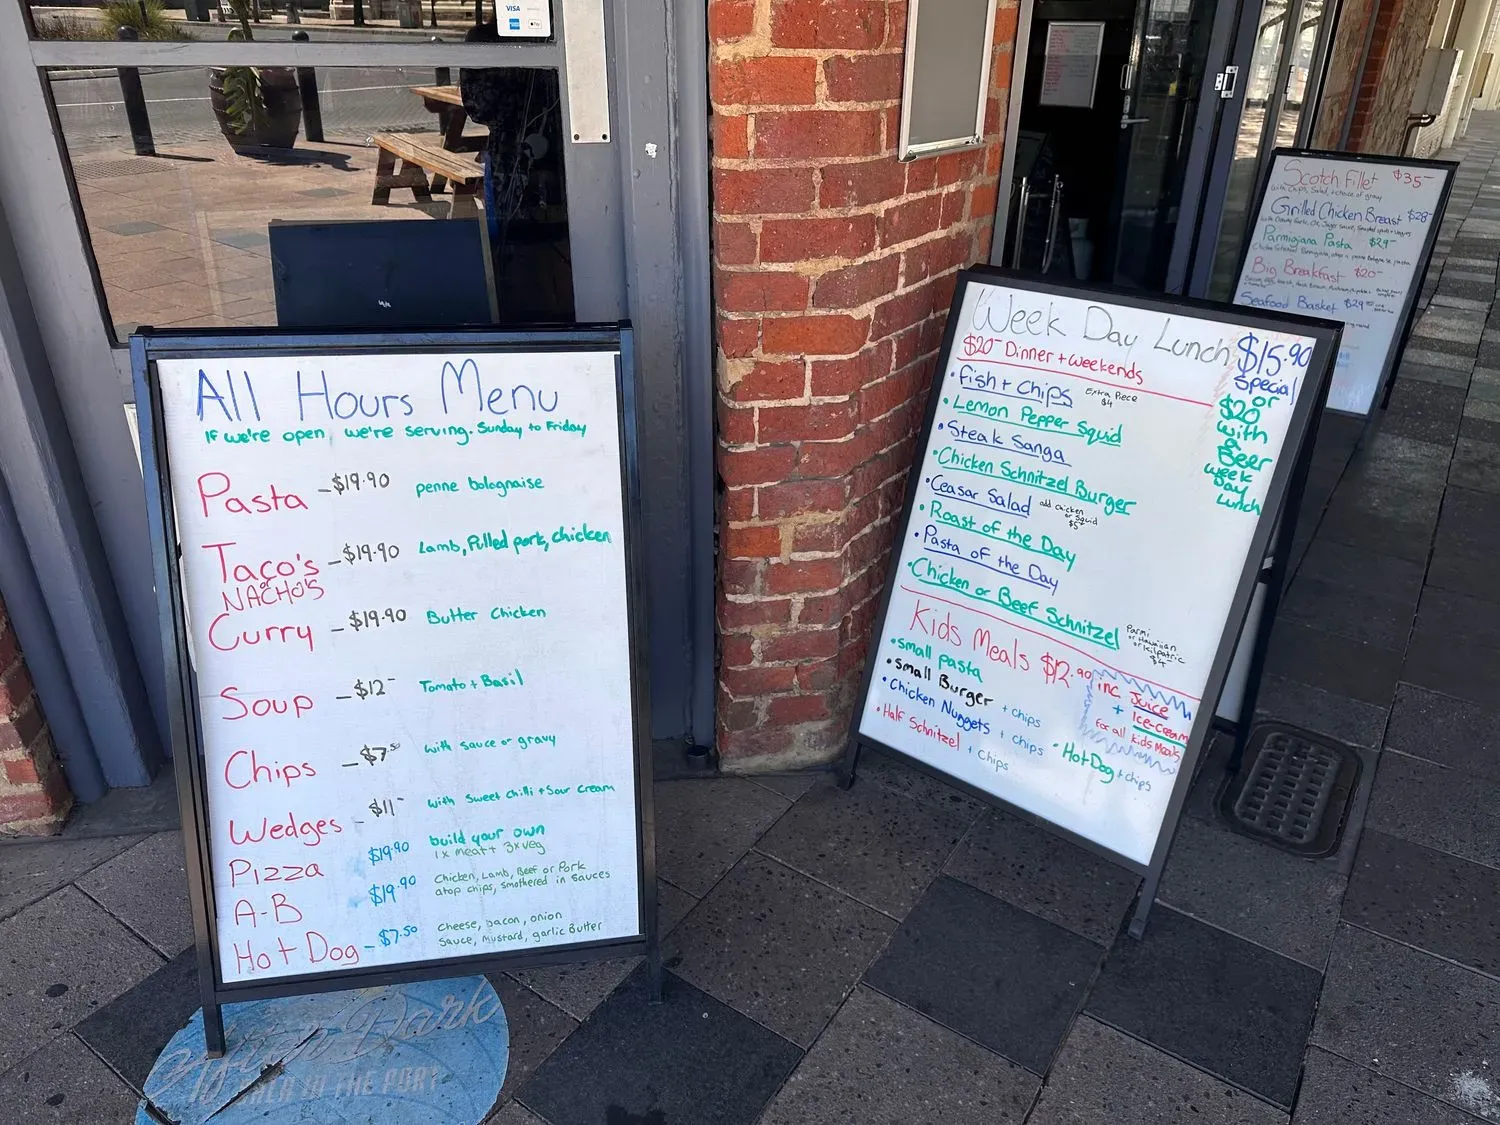 VISA
All Hours Menu
If we're open, we're serving. Sunday to Friday
Pasta - $19.90 penne bolognaise
Taco's or NACHO'S - $19.90 Lamb, Pulled pork, chicken
Curry - $19.90 Butter Chicken
Soup - $12- Tomato + Basil
Chips - $7.50 with sauce or gravy
Wedges - $11- with sweet chilli + sour cream
Pizza $19.90 build your own
1x meat + 3x veg
A-B $19.90 Chicken, Lamb, Beef or Pork
atop chips, smothered in sauces
Hot Dog - $7.50 cheese, bacon, onion
sauce, mustard, garlic Butter
After Dark
IN THE PORT
Week Day Lunch
$15.90
special
or
$20
with
a
Beer
week
day
Lunch
$20- Dinner + weekends
• fish + chips Extra Piece $4
• Lemon Pepper Squid
• Steak Sanga
• Chicken Schnitzel Burger
• Ceasar Salad add chicken or squid $5
• Roast of the Day
• Pasta of the Day
• Chicken or Beef Schnitzel
Parmi
or Hawaiian
or kilpatric
$4
Kids Meals $12.90 inc. Juice
+ Ice-cream
for all kids meals
• small pasta
• small Burger + chips
• Chicken Nuggets + chips
• Half Schnitzel + chips
• Hot Dog + chips
Scotch Fillet $35-
with chips, salad, + choice of gravy
Grilled Chicken Breast $28-
Parmigiana Pasta $29-
Big Breakfast $20-
Seafood Basket $29